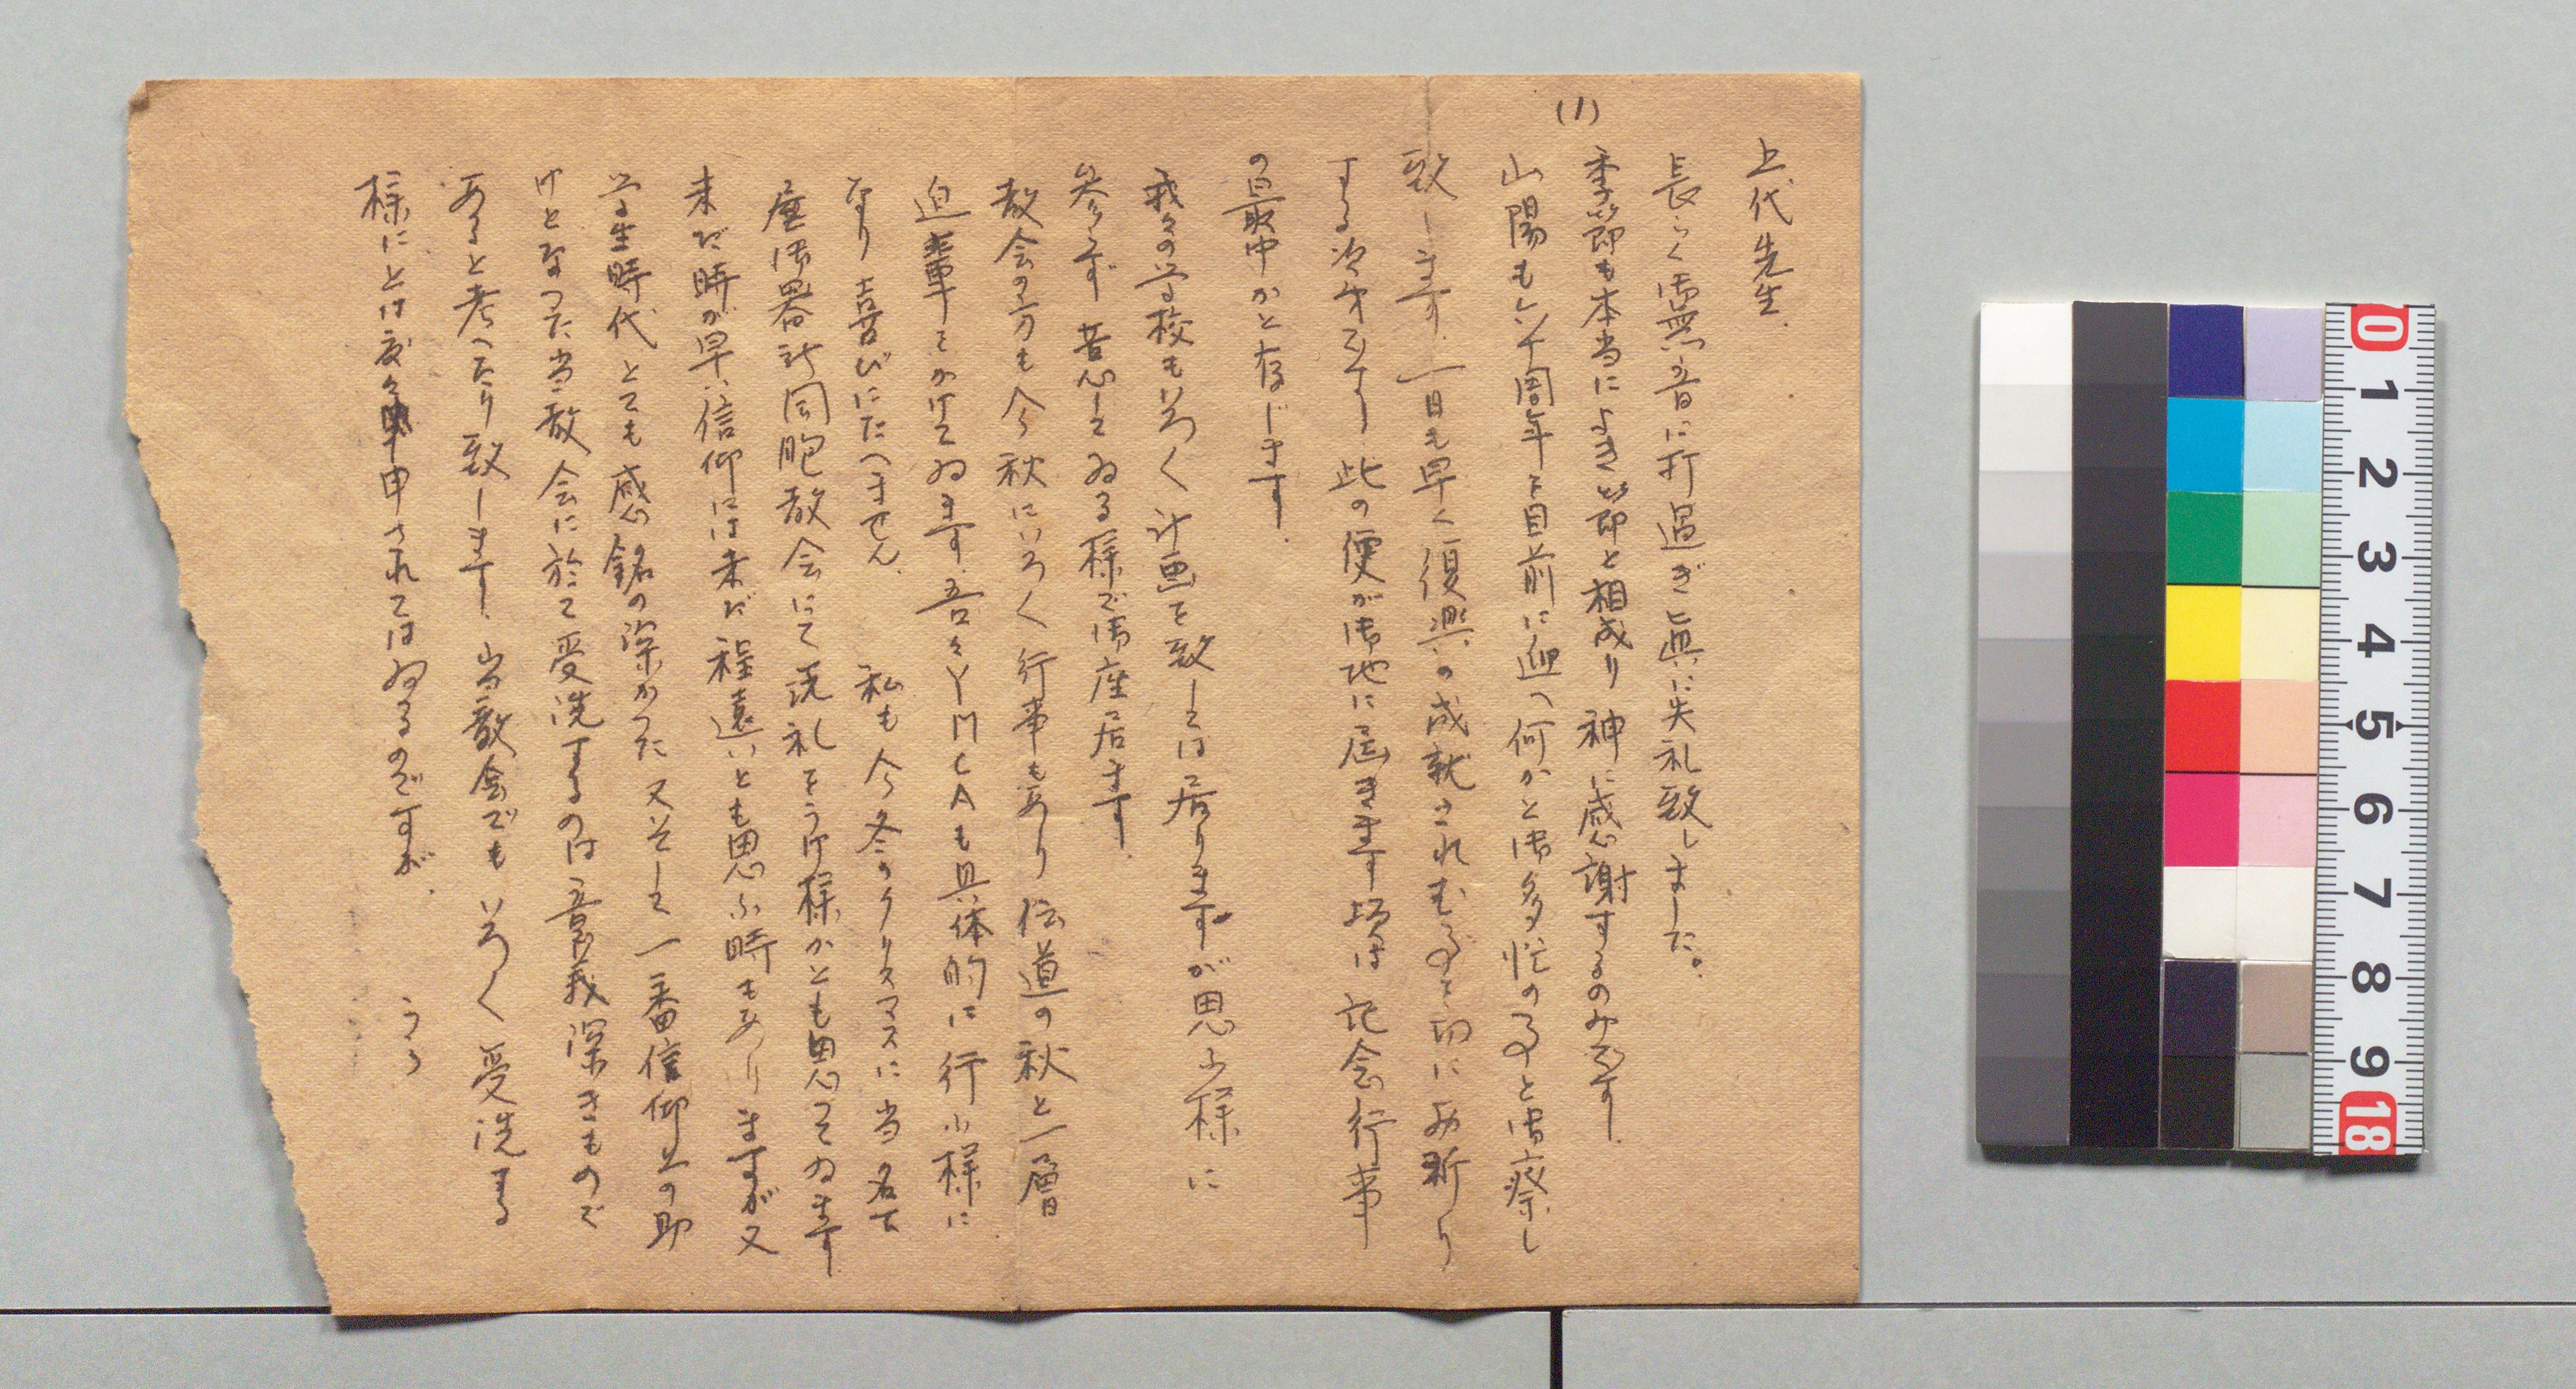 (1)
上代先生.
長らく御無音に打過ぎ眞に失礼致しました。
季節も本当によき節と相成り神に感謝するのみです.
山陽も六十周年を目前に迎へ何かと御多忙の事と御察し
致します.一日も早く復興の成就されむ事を切に祈り
する次第です.此の便が御地に屆きます頃は記念行事
の最中かと存じます.
我々の学校もいろ〱計画を致しては居りますが思ふ様に
参らず苦心してゐる様で御座居ます.
教会の方も今秋にいろ〱行事もあり伝道の秋と一層
迫車をかけてゐます.吾々YMCAも具体的に行ふ様に
なり喜びにたへません.私も今冬のクリスマスに当名古
屋御器所同胞教会にて洗礼をうけ様かとも思つてゐます
未だ時が早い信仰には未だ程遠いとも思ふ時もありますが又
学生時代とても感銘の深かつた又そして一番信仰上の助
けとなつた当教会に於て受洗するのは意義深きもので
あると考へたり致します.当教会でもいろ〱受洗する
様にとは度々申されてはゐるのですが.
うら
0 1 2 3 4 5 6 7 8 9 18